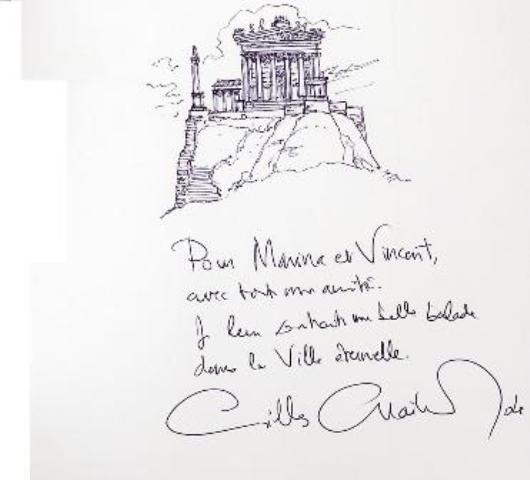 Pour Marina et Vincent,
avec toute mon amitié.
Je leur souhaite une belle balade
dans la Ville éternelle.
Gilles Chaillet